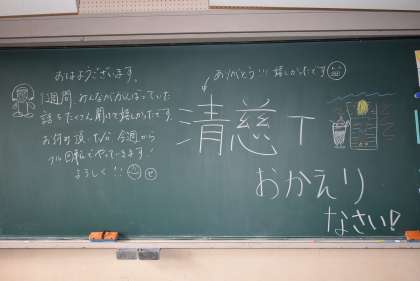 おはようございます。
1週間、みんながんばっていた
話をたくさん聞けて嬉しかったです。
今週から
フル回転でやっていきます!
よろしく!!
ありがとう!!! 嬉しかったです
清慈T
おかえり
なさい!